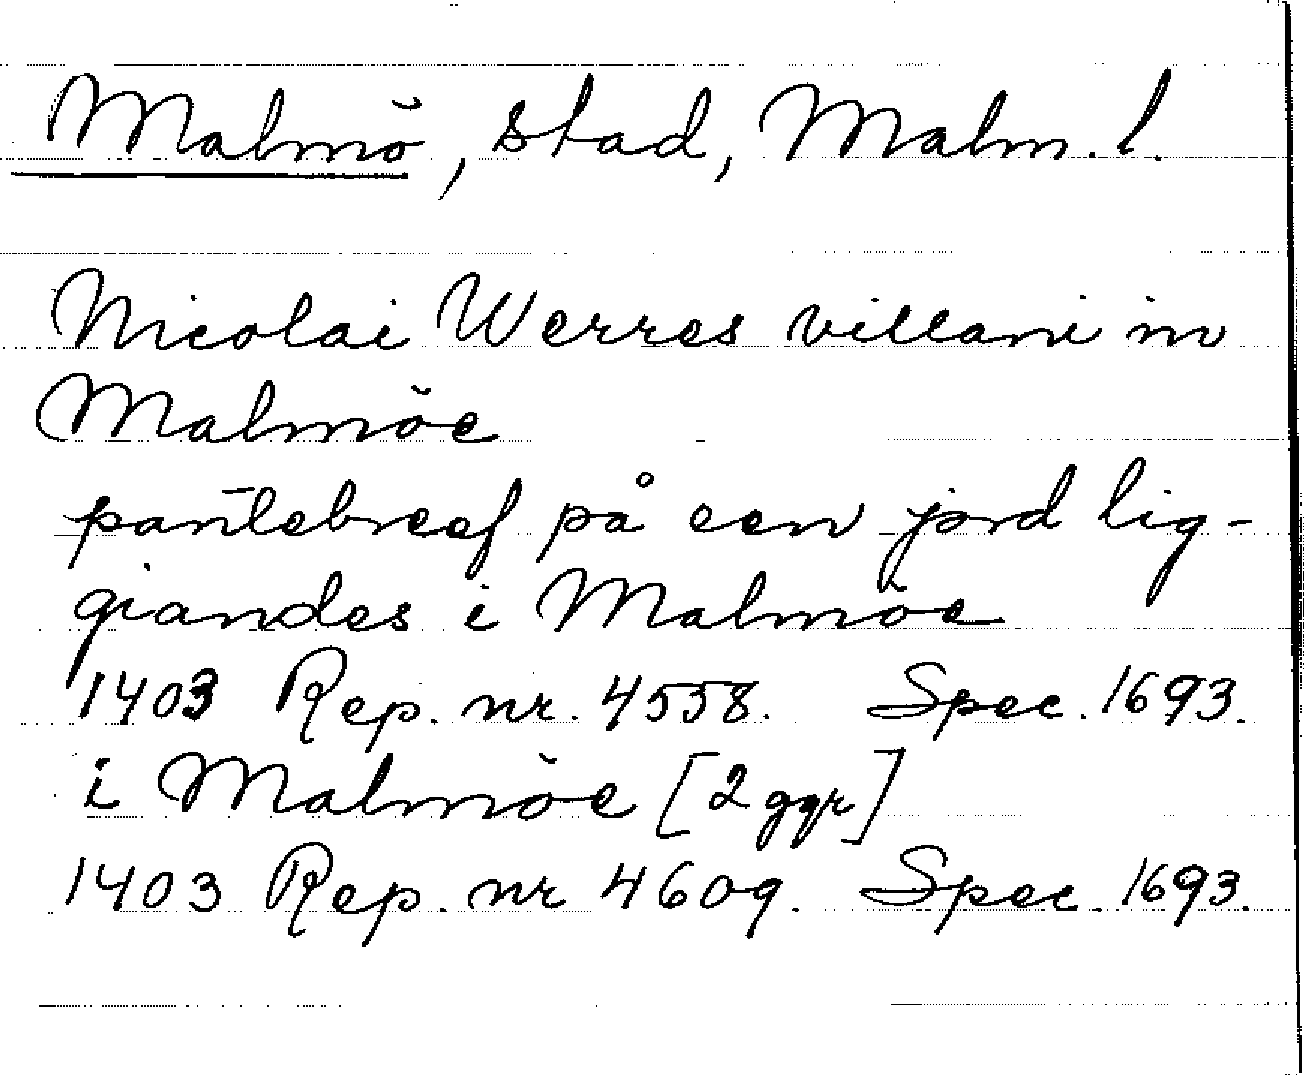 Malmö, stad, Malm. l.
Nicolai Werres villani in
Malmöe
pantebreef på een jord lig-
giandes i Malmöe
1403 Rep. nr. 4558. Spec. 1693.
i Malmöe [2 ggr]
1403 Rep. nr 4609. Spec. 1693.